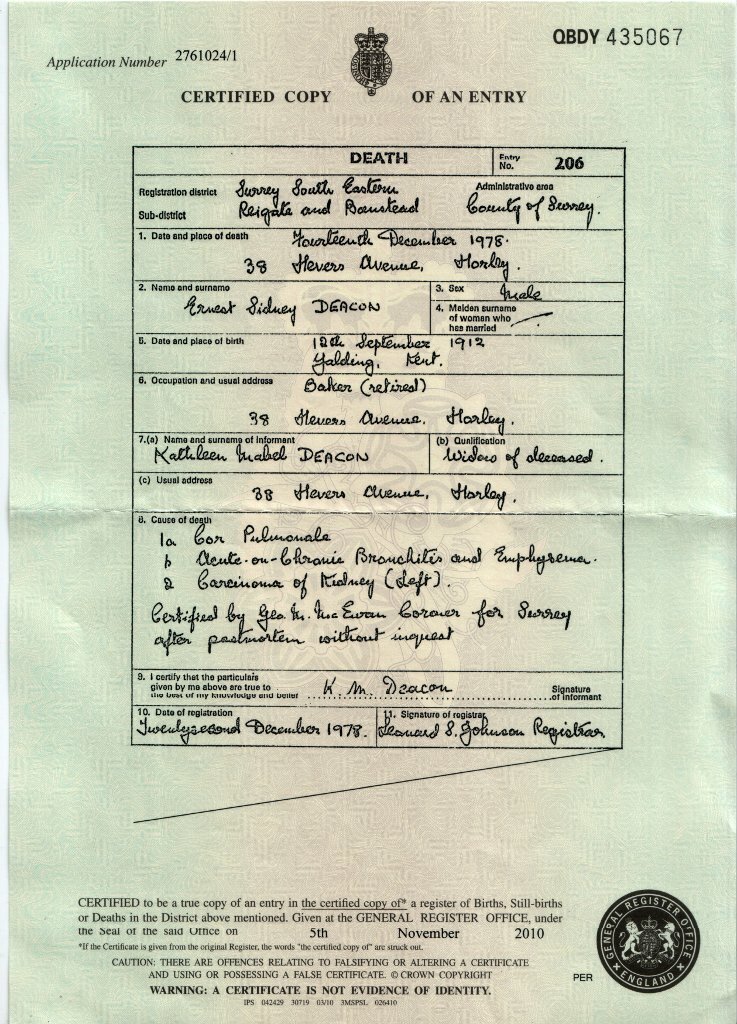 Application Number 2761024/1
QBDY 435067
CERTIFIED COPY OF AN ENTRY
DEATH
Entry No. 206
Registration district Surrey South Eastern
Administrative area
Sub-district Reigate and Banstead
County of Surrey.
1. Date and place of death Fourteenth December 1978.
38 Hevers Avenue, Horley.
2. Name and surname
Ernest Sidney DEACON
3. Sex Male
4. Maiden surname
of woman who
has married
5. Date and place of birth 12th September 1912
Yalding, Kent.
6. Occupation and usual address Baker (retired)
38 Hevers Avenue, Horley.
7.(a) Name and surname of informant
Kathleen Mabel DEACON
(b) Qualification
Widow of deceased.
(c) Usual address
38 Hevers Avenue, Horley.
8. Cause of death
1a Cor Pulmonale
b Acute-on-Chronic Bronchitis and Emphysema.
2 Carcinoma of Kidney (Left).
Certified by Geo. M. McEwan Coroner for Surrey
after postmortem without inquest
9. I certify that the particulars
given by me above are true to
the best of my knowledge and belief K. M. Deacon
Signature
of informant
10. Date of registration
Twentysecond December 1978.
11. Signature of registrar
Leonard S. Johnson Registrar
CERTIFIED to be a true copy of an entry in the certified copy of* a register of Births, Still-births
or Deaths in the District above mentioned. Given at the GENERAL REGISTER OFFICE, under
the Seal of the said Office on 5th November 2010
*If the Certificate is given from the original Register, the words "the certified copy of" are struck out.
CAUTION: THERE ARE OFFENCES RELATING TO FALSIFYING OR ALTERING A CERTIFICATE
AND USING OR POSSESSING A FALSE CERTIFICATE. © CROWN COPYRIGHT
WARNING: A CERTIFICATE IS NOT EVIDENCE OF IDENTITY.
IPS 042429 30719 03/10 3MSPSL 026410
PER
GENERAL REGISTER OFFICE
ENGLAND